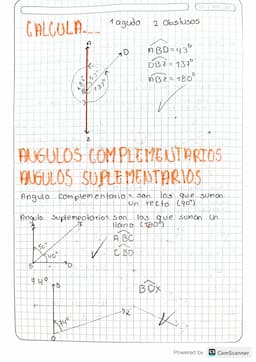 CALCULA...
1 agudo 2 Obstusos
A
D
ABD = 43°
DBZ = 137°
ABZ = 180°
Z
ANGULOS COMPLEMENTARIOS
ANGULOS SUPLEMENTARIOS
Angulo complementario = son las que suman
un recto (90°)
Angulo Suplementarios son las que suman un
llano (180°)
50°
40°
ABC
CBD
74°
BOX
74°
Powered by CamScanner